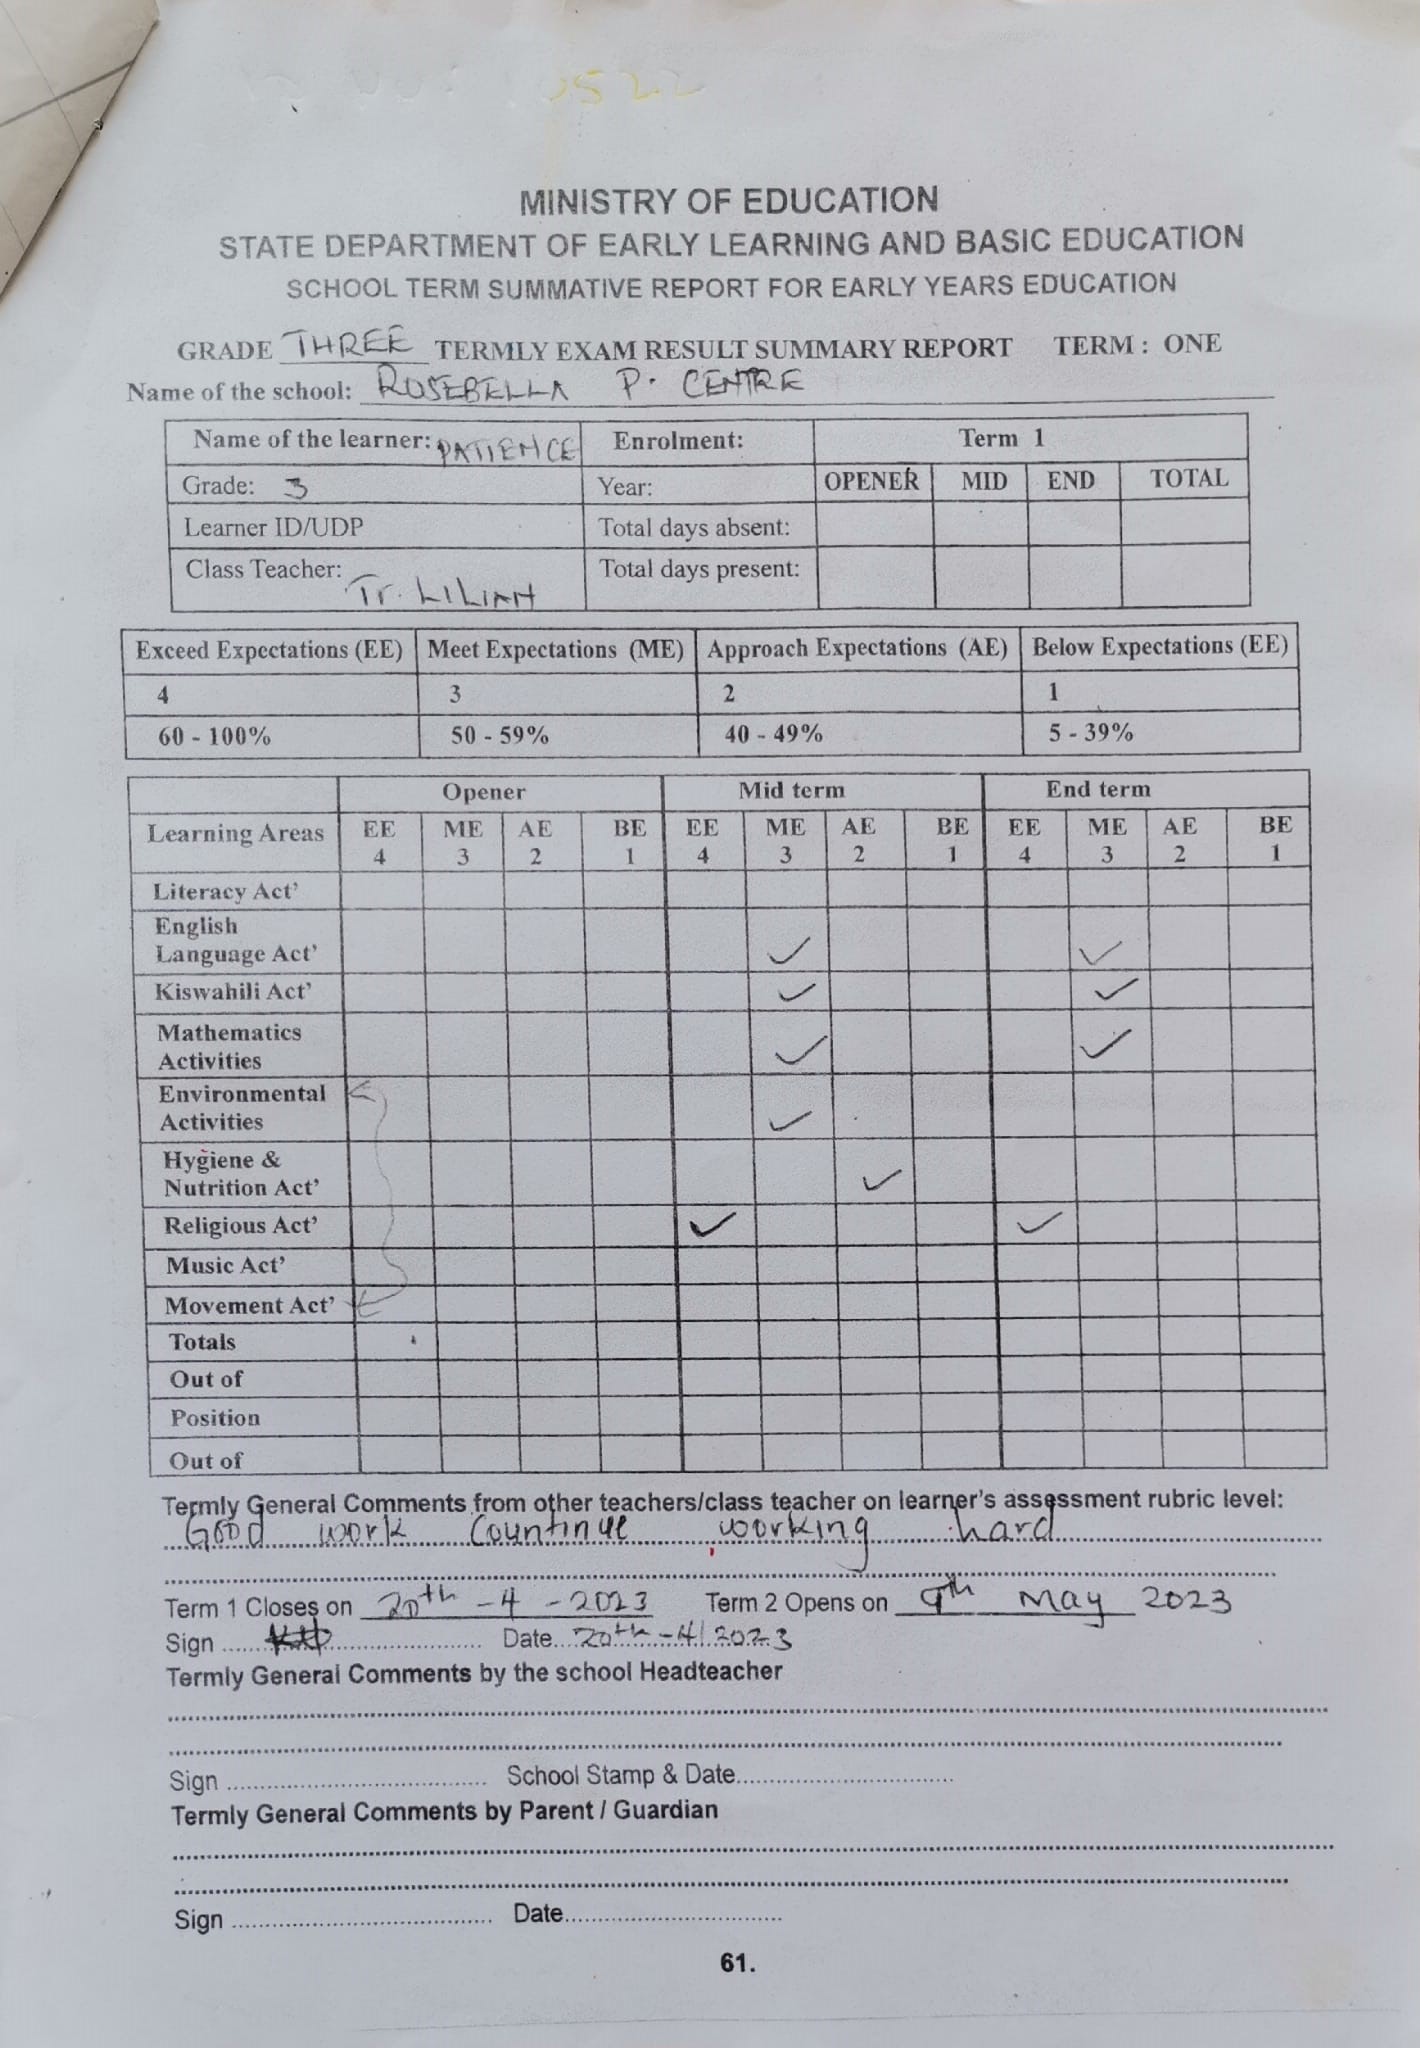 MINISTRY OF EDUCATION
STATE DEPARTMENT OF EARLY LEARNING AND BASIC EDUCATION
SCHOOL TERM SUMMATIVE REPORT FOR EARLY YEARS EDUCATION
GRADE THREE TERMLY EXAM RESULT SUMMARY REPORT TERM : ONE
Name of the school: ROSEBELLA P. CENTRE
Name of the learner: PATIENCE Enrolment: Term 1
Grade: 3 Year: OPENER MID END TOTAL
Learner ID/UDP Total days absent:
Class Teacher: Tr. LILIAN Total days present:
Exceed Expectations (EE) Meet Expectations (ME) Approach Expectations (AE) Below Expectations (EE)
4 3 2 1
60 - 100% 50 - 59% 40 - 49% 5 - 39%
Opener Mid term End term
Learning Areas EE 4 ME 3 AE 2 BE 1 EE 4 ME 3 AE 2 BE 1 EE 4 ME 3 AE 2 BE 1
Literacy Act'
English
Language Act' ✓ ✓
Kiswahili Act' ✓ ✓
Mathematics
Activities ✓ ✓
Environmental
Activities ✓
Hygiene &
Nutrition Act' ✓
Religious Act' ✓ ✓
Music Act'
Movement Act'
Totals
Out of
Position
Out of
Termly General Comments from other teachers/class teacher on learner's assessment rubric level:
Good work Countinue working hard
Term 1 Closes on 20th - 4 - 2023 Term 2 Opens on 9th May 2023
Sign Date 20th - 4/ 2023
Termly General Comments by the school Headteacher
Sign School Stamp & Date
Termly General Comments by Parent / Guardian
Sign Date
61.